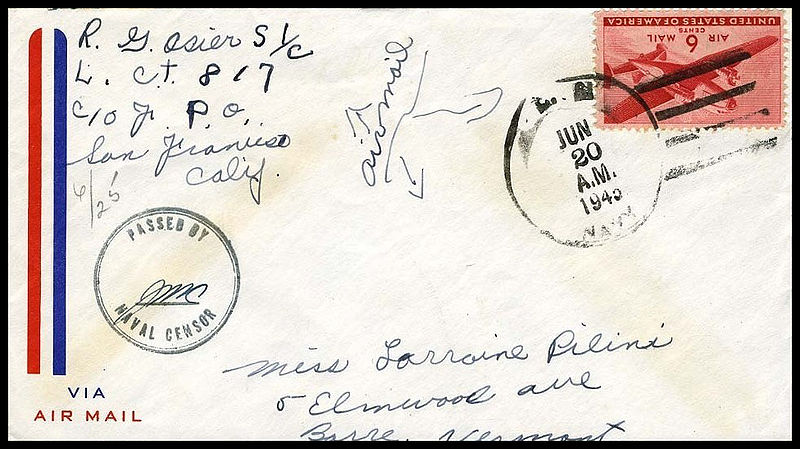 R. G. Osier S 1/c
L. C.T. 817
c/o F. P.O.
San Francisco
Calif.
6/25
air mail
UNITED STATES OF AMERICA
AIR MAIL
6
CENTS
JUN
20
A.M.
1945
NAVY
PASSED BY
NAVAL CENSOR
VIA
AIR MAIL
Miss Lorraine Pilini
5 Elmwood ave
Barre, Vermont